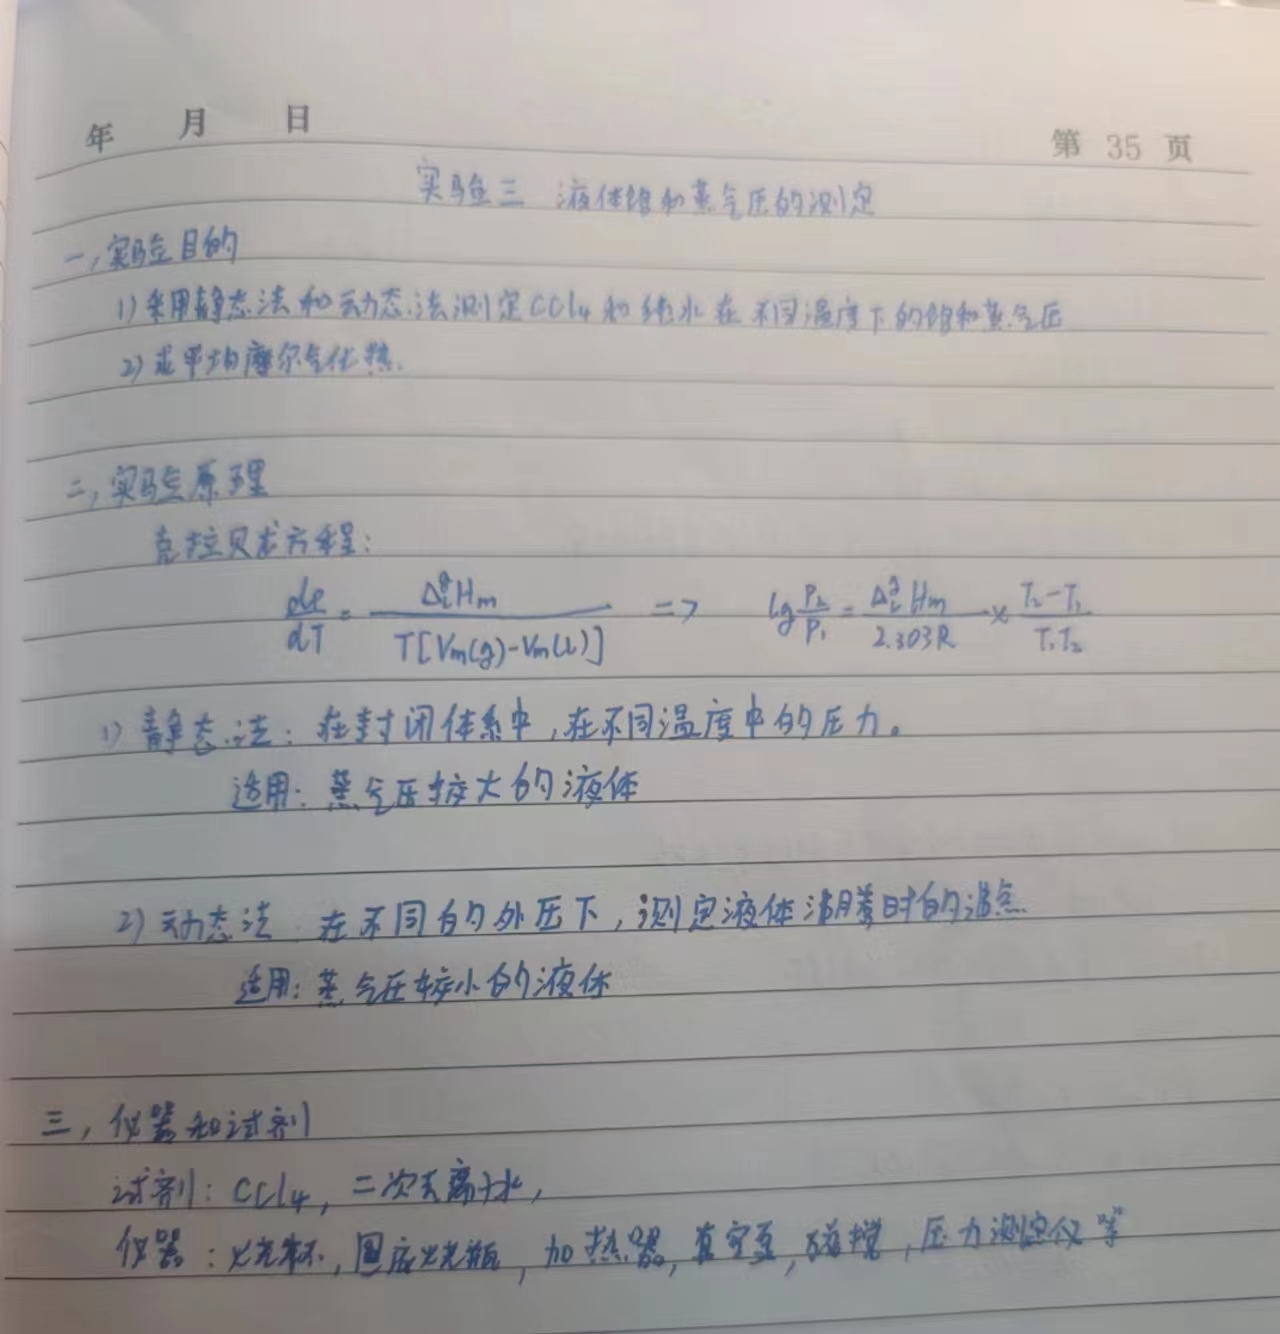 年 月 日 第 35 页
实验三 液体饱和蒸气压的测定
一,实验目的
1) 采用静态法和动态法测定CCl4和纯水在不同温度下的饱和蒸气压
2) 求平均摩尔气化热.
二,实验原理
克拉贝龙方程:
dP/dT = Δ_l^g H_m / T[V_m(g)-V_m(l)] => lg P2/P1 = Δ_l^g H_m / 2.303R × T2-T1 / T1T2
1) 静态法: 在封闭体系中,在不同温度中的压力。
适用: 蒸气压较大的液体
2) 动态法: 在不同的外压下,测定液体沸腾时的沸点
适用: 蒸气压较小的液体
三,仪器和试剂
试剂: CCl4, 二次去离子水,
仪器: 烧杯, 圆底烧瓶, 加热器, 真空泵, 磁搅, 压力测定仪 等